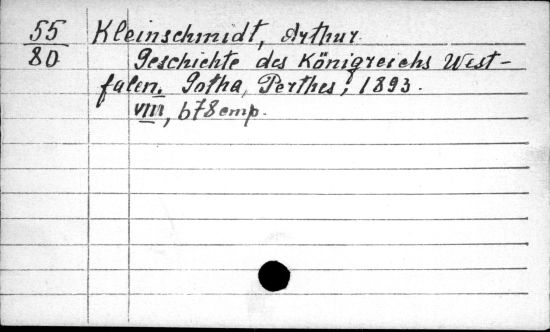 55 Kleinschmidt, Arthur.
80 Geschichte des Königreichs West-
falen. Gotha, Perthes, 1893.
VIII, 678 стр.